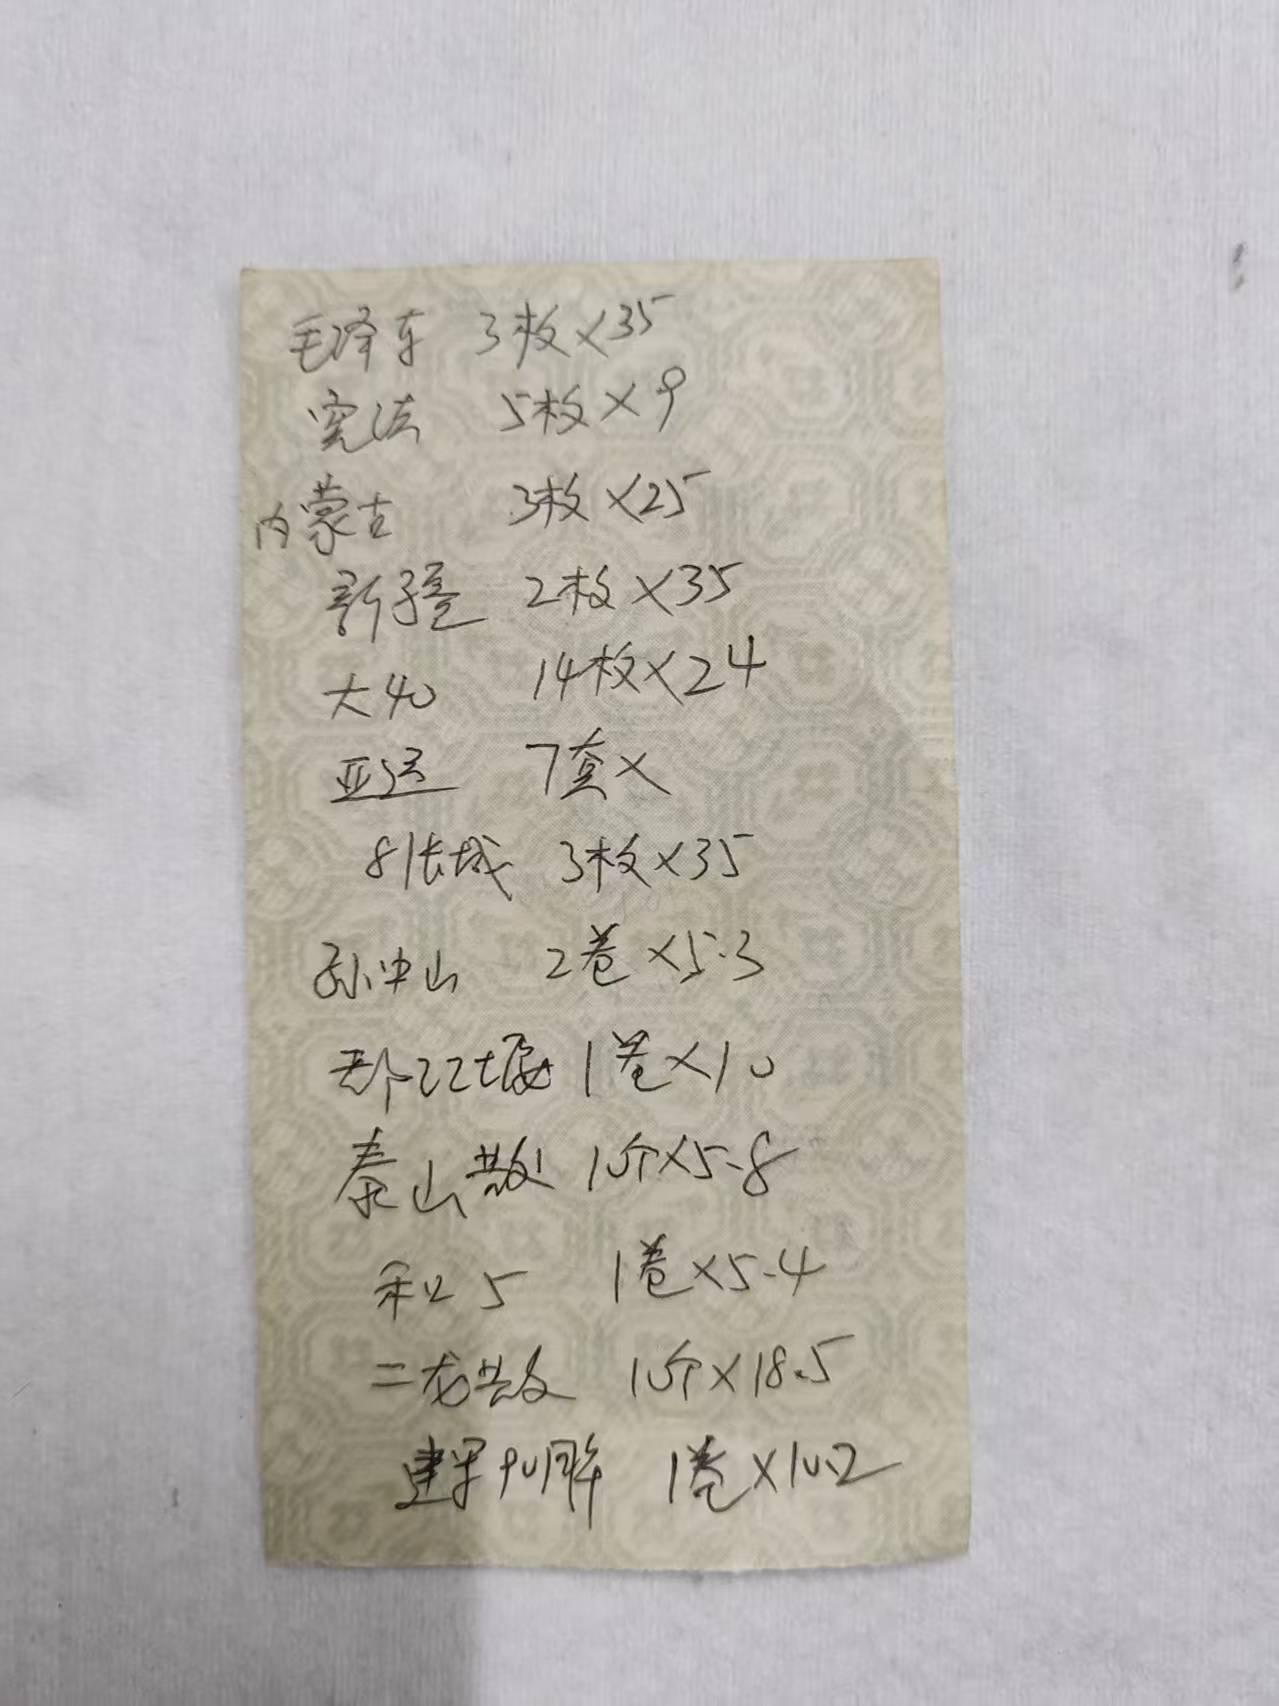 毛泽东 3枚×35
宪法 5枚×9
内蒙古 3枚×25
新疆 2枚×35
大40 14枚×24
亚运 7套×
81长城 3枚×35
孙中山 2卷×5.3
都江堰 1卷×10
泰山散 10个×5.8
和5 1卷×5.4
二龙散 10个×18.5
建军90周年 1卷×10.2